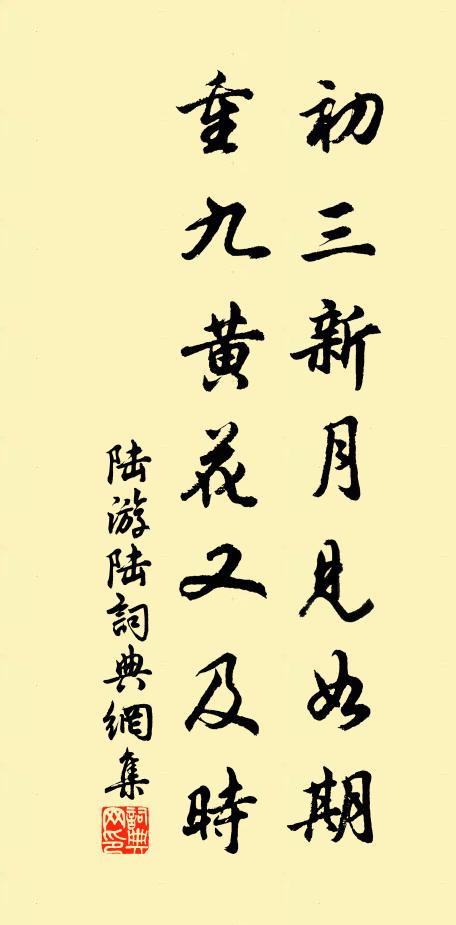 初三新月見如期
重九黄花又及時
陆游陆詞典網集
詞典網印